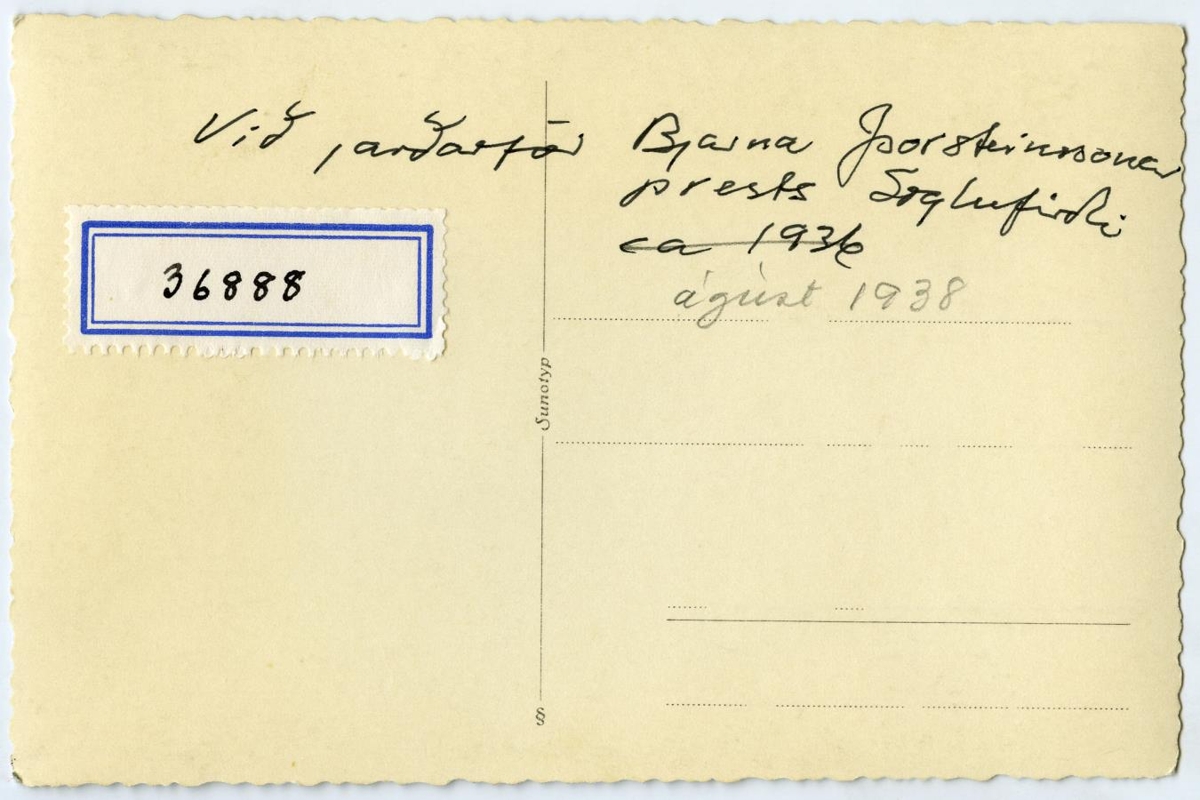 Við jarðarför Bjarna Þorsteinssonar
prests Siglufirði
ca 1936
ágúst 1938
36888
Sunotyp
§